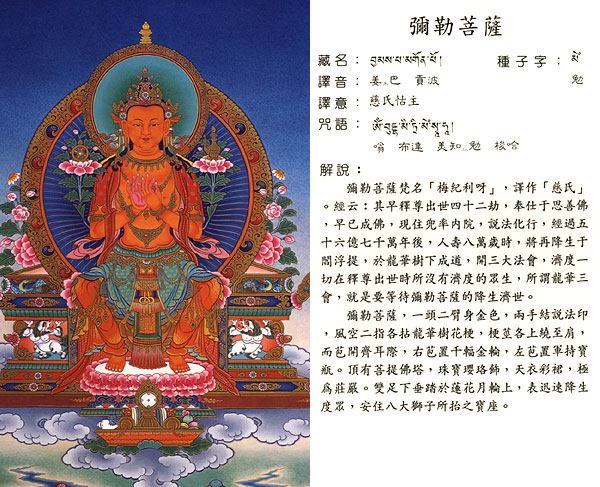 彌勒菩薩
藏名：བྱམས་པ་མགོན་པོ། 種子字：མཻ
譯音：姜 巴 貢波 勉
譯意：慈氏怙主
咒語：
嗡 布達 美知 勉 梭哈
解說：
彌勒菩薩梵名「梅紀利呀」，譯作「慈氏」
。經云：其早釋尊出世四十二劫，奉仕于思善佛
，早已成佛，現住兜率內院，說法化行，經過五
十六億七千萬年後，人壽八萬歲時，將再降生于
閻浮提，於龍華樹下成道，開三大法會，濟度一
切在釋尊出世時所沒有濟度的眾生，所謂龍華三
會，就是要等待彌勒菩薩的降生濟世。
彌勒菩薩，一頭二臂身金色，兩手結說法印
，風空二指各拈龍華樹花梗，梗莖各上繞至肩，
而苞開齊耳際，右苞置千輻金輪，左苞置軍持寶
瓶。頂有菩提佛塔，珠寶瓔珞飾，天衣彩裙，極
為莊嚴。雙足下垂踏於蓮花月輪上，表迅速降生
度眾，安住八大獅子所抬之寶座。